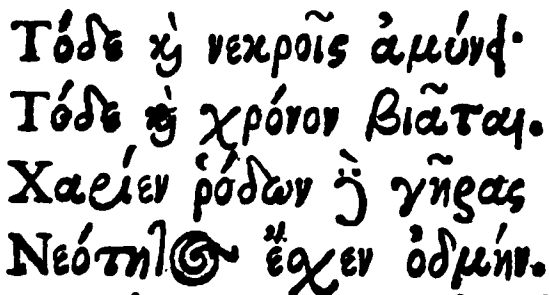 Τόδε ϗ̀ νεκροῖς ἀμύνει·
Τόδε ϗ̀ χρόνον βιᾶται.
Χαρίεν ῥόδων δὲ γῆρας
Νεότητος ἔσχεν ὀδμήν.